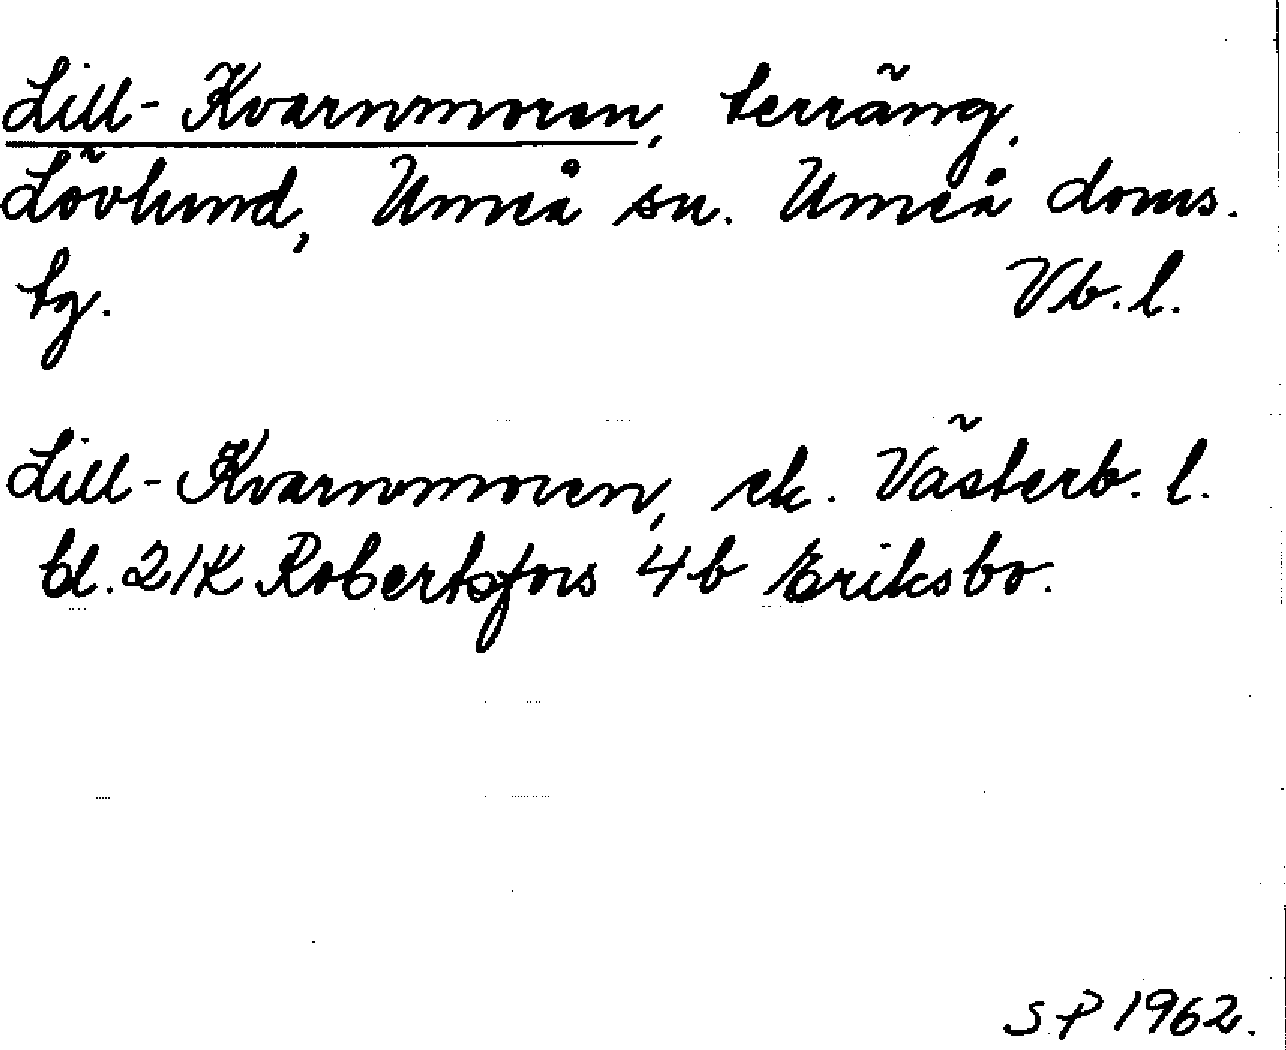 Lill-Kvarnmoran, terräng,
Lövlund, Umeå sn. Umeå doms.
tg. Vb. l.
Lill-Kvarnmoren, ek. Västerb. l.
bl. 21K Robertsfors 4b Eriksbo.
SP 1962.